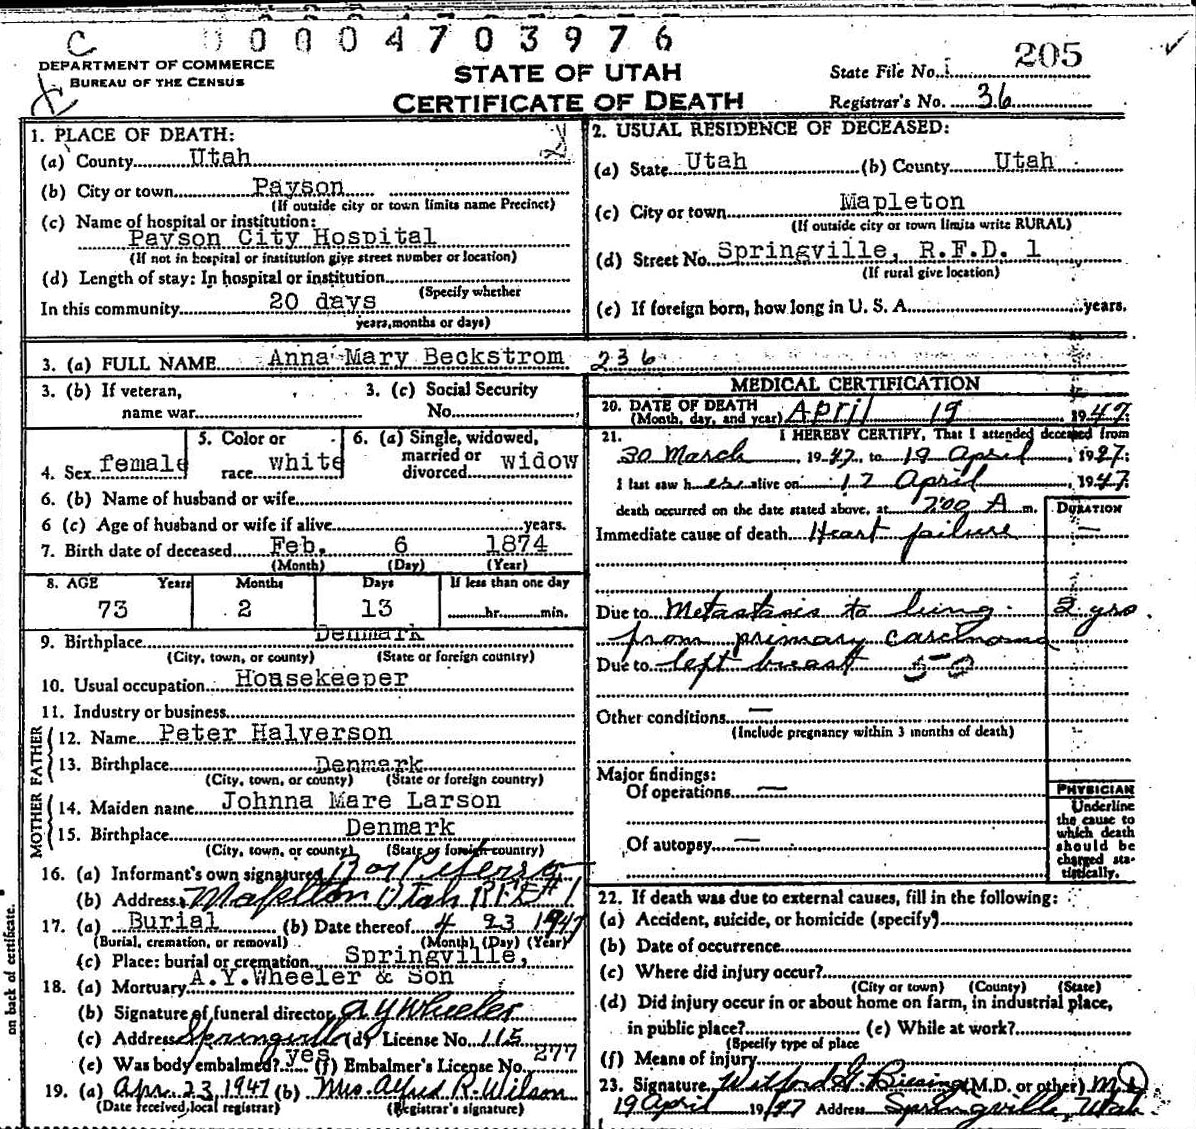 C 00004703976
DEPARTMENT OF COMMERCE
BUREAU OF THE CENSUS
STATE OF UTAH
CERTIFICATE OF DEATH
State File No. 205
Registrar's No. 36
1. PLACE OF DEATH:
(a) County Utah
(b) City or town Payson
(If outside city or town limits name Precinct)
(c) Name of hospital or institution:
Payson City Hospital
(If not in hospital or institution give street number or location)
(d) Length of stay: In hospital or institution
(Specify whether
In this community 20 days
years, months or days)
2. USUAL RESIDENCE OF DECEASED:
(a) State Utah (b) County Utah
(c) City or town Mapleton
(If outside city or town limits write RURAL)
(d) Street No. Springville, R.F.D. 1
(If rural give location)
(e) If foreign born, how long in U. S. A. years.
3. (a) FULL NAME Anna Mary Beckstrom 236
3. (b) If veteran, name war
3. (c) Social Security No.
4. Sex female
5. Color or race white
6. (a) Single, widowed, married or divorced widow
6. (b) Name of husband or wife
6 (c) Age of husband or wife if alive years.
7. Birth date of deceased Feb. 6 1874
(Month) (Day) (Year)
8. AGE Years Months Days If less than one day
73 2 13 hr. min.
9. Birthplace Denmark
(City, town, or county) (State or foreign country)
10. Usual occupation Housekeeper
11. Industry or business
FATHER
12. Name Peter Halverson
13. Birthplace Denmark
(City, town, or county) (State or foreign country)
MOTHER
14. Maiden name Johnna Mare Larson
15. Birthplace Denmark
(City, town, or county) (State or foreign country)
16. (a) Informant's own signature
(b) Address Mapelton Utah RFD #1
17. (a) Burial (b) Date thereof 4 23 1947
(Burial, cremation, or removal) (Month) (Day) (Year)
(c) Place: burial or cremation Springville,
18. (a) Mortuary A.Y.Wheeler & Son
(b) Signature of funeral director AY Wheeler
(c) Address Springville (d) License No. 115
(e) Was body embalmed? yes (f) Embalmer's License No. 277
19. (a) Apr. 23, 1947 (b) Mrs. Alfred R. Wilson
(Date received local registrar) (Registrar's signature)
on back of certificate.
MEDICAL CERTIFICATION
20. DATE OF DEATH April 19 1947
(Month, day, and year)
21. I HEREBY CERTIFY, That I attended deceased from
30 March, 1947, to 19 April, 1947;
I last saw her alive on 17 April, 1947
death occurred on the date stated above, at 7:00 A m.
DURATION
Immediate cause of death Heart failure —
Due to Metastasis to lung 2 yrs.
from primary carcinoma
Due to left breast 50
Other conditions —
(Include pregnancy within 3 months of death)
Major findings:
Of operations —
Of autopsy —
PHYSICIAN
Underline
the cause to
which death
should be
charged sta-
tistically.
22. If death was due to external causes, fill in the following:
(a) Accident, suicide, or homicide (specify)
(b) Date of occurrence
(c) Where did injury occur?
(City or town) (County) (State)
(d) Did injury occur in or about home on farm, in industrial place,
in public place? (e) While at work?
(Specify type of place
(f) Means of injury
23. Signature (M.D. or other) M.D.
19 April 1947 Address Springville, Utah